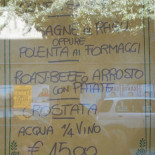 LASAGNE o RAGÙ
OPPURE
POLENTA AI FORMAGGI
ROAST-BEEF o ARROSTO
CON PATATE
CROSTATA
ACQUA ¼ VINO
€ 15,00